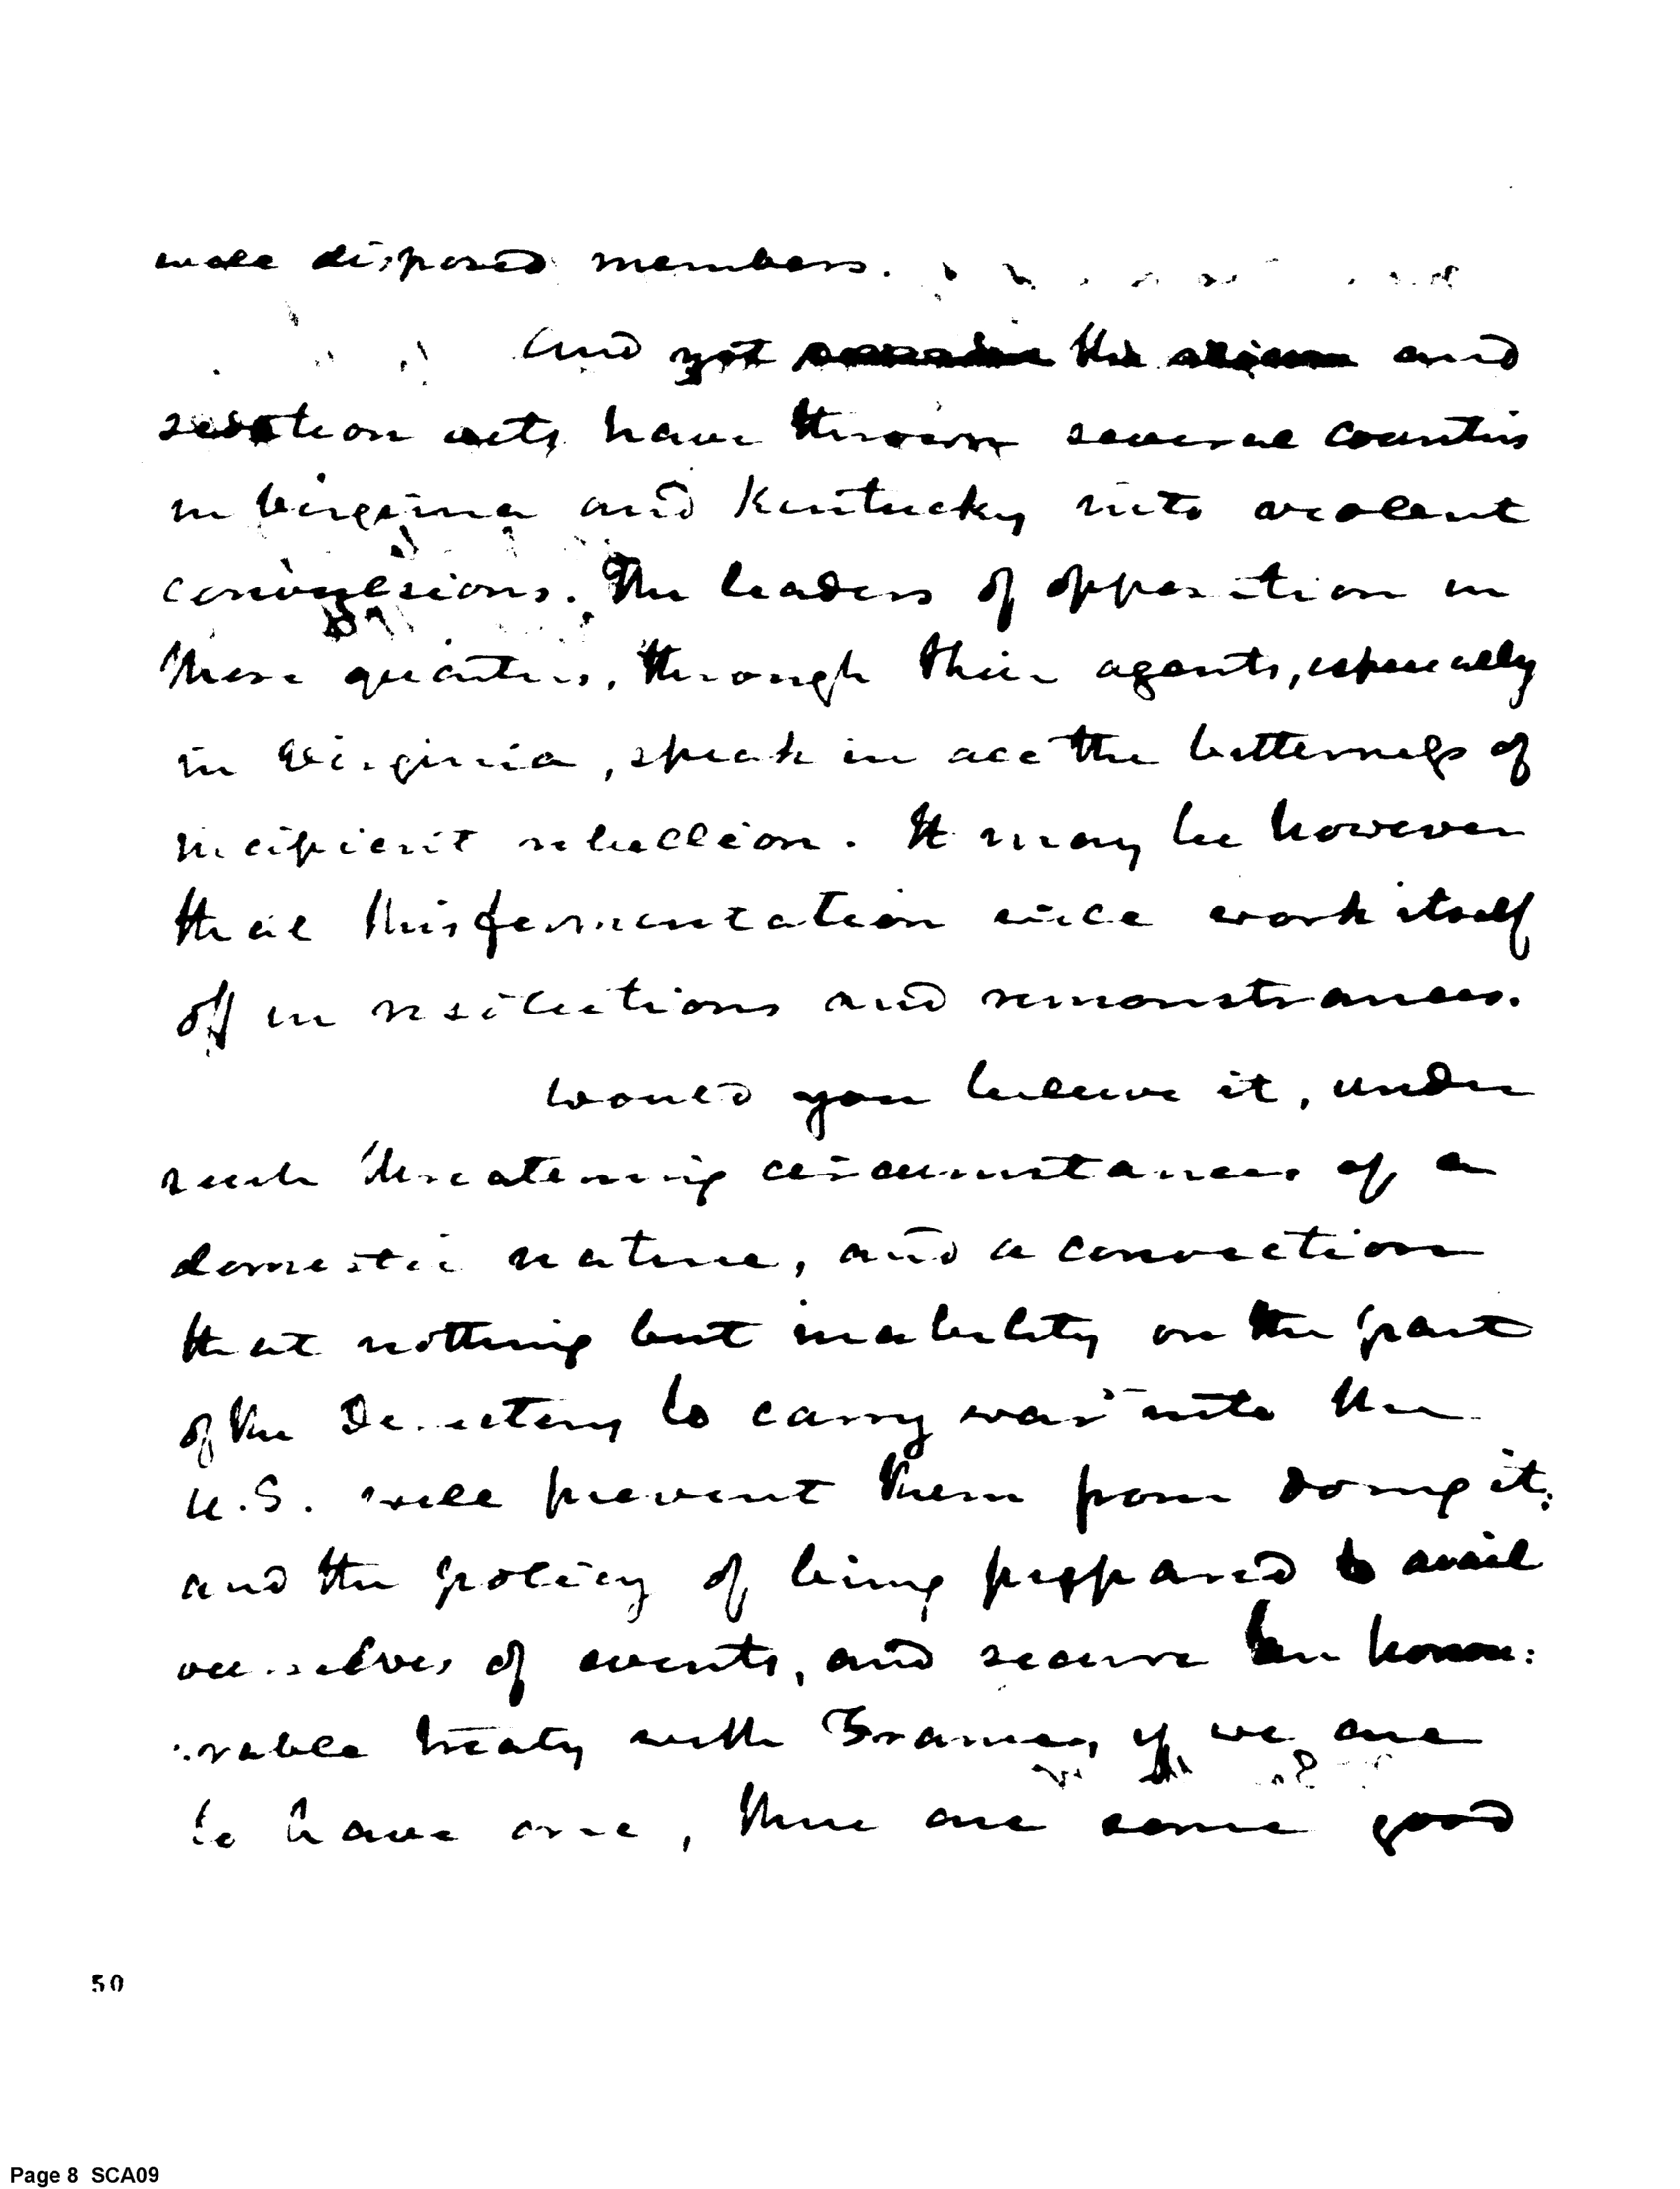 well disposed members.
And yet the alien and
sedition acts have thrown several counties
in Virginia and Kentucky into violent
convulsions. The leaders of opposition in
these quarters, through their agents, especially
in Virginia, speak in all the bitterness of
incipient rebellion. It may be however
that this fermentation will work itself
off in resolutions and remonstrances.
Would you believe it, under
such threatening circumstances of a
domestic nature, and a conviction
that nothing but inability on the part
of the Directory to carry war into the
U.S. will prevent them from doing it;
and the policy of being prepared to avail
ourselves of events, and secure an hono:
:rable treaty with France, if we are
to have one, there are some good
50
Page 8 SCA09